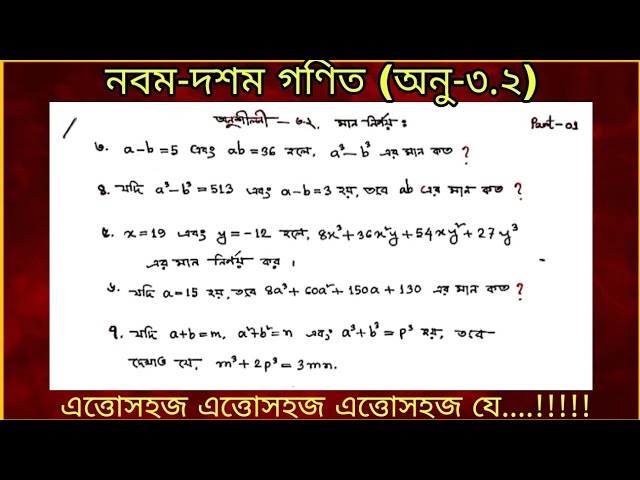 নবম-দশম গণিত (অনু-৩.২)
অনুশীলনী - ৩.২, মান নির্ণয় : Part-01
৩. a-b=5 এবং ab=36 হলে, a³-b³ এর মান কত ?
৪. যদি a³-b³=513 এবং a-b=3 হয়, তবে ab এর মান কত ?
৫. x=19 এবং y=-12 হলে, 8x³+36x²y+54xy²+27y³
এর মান নির্ণয় কর।
৬. যদি a=15 হয়, তবে 8a³+60a²+150a+130 এর মান কত ?
৭. যদি a+b=m, a²+b²=n এবং a³+b³=p³ হয়, তবে
দেখাও যে, m³+2p³=3mn.
এত্তোসহজ এত্তোসহজ এত্তোসহজ যে....!!!!!